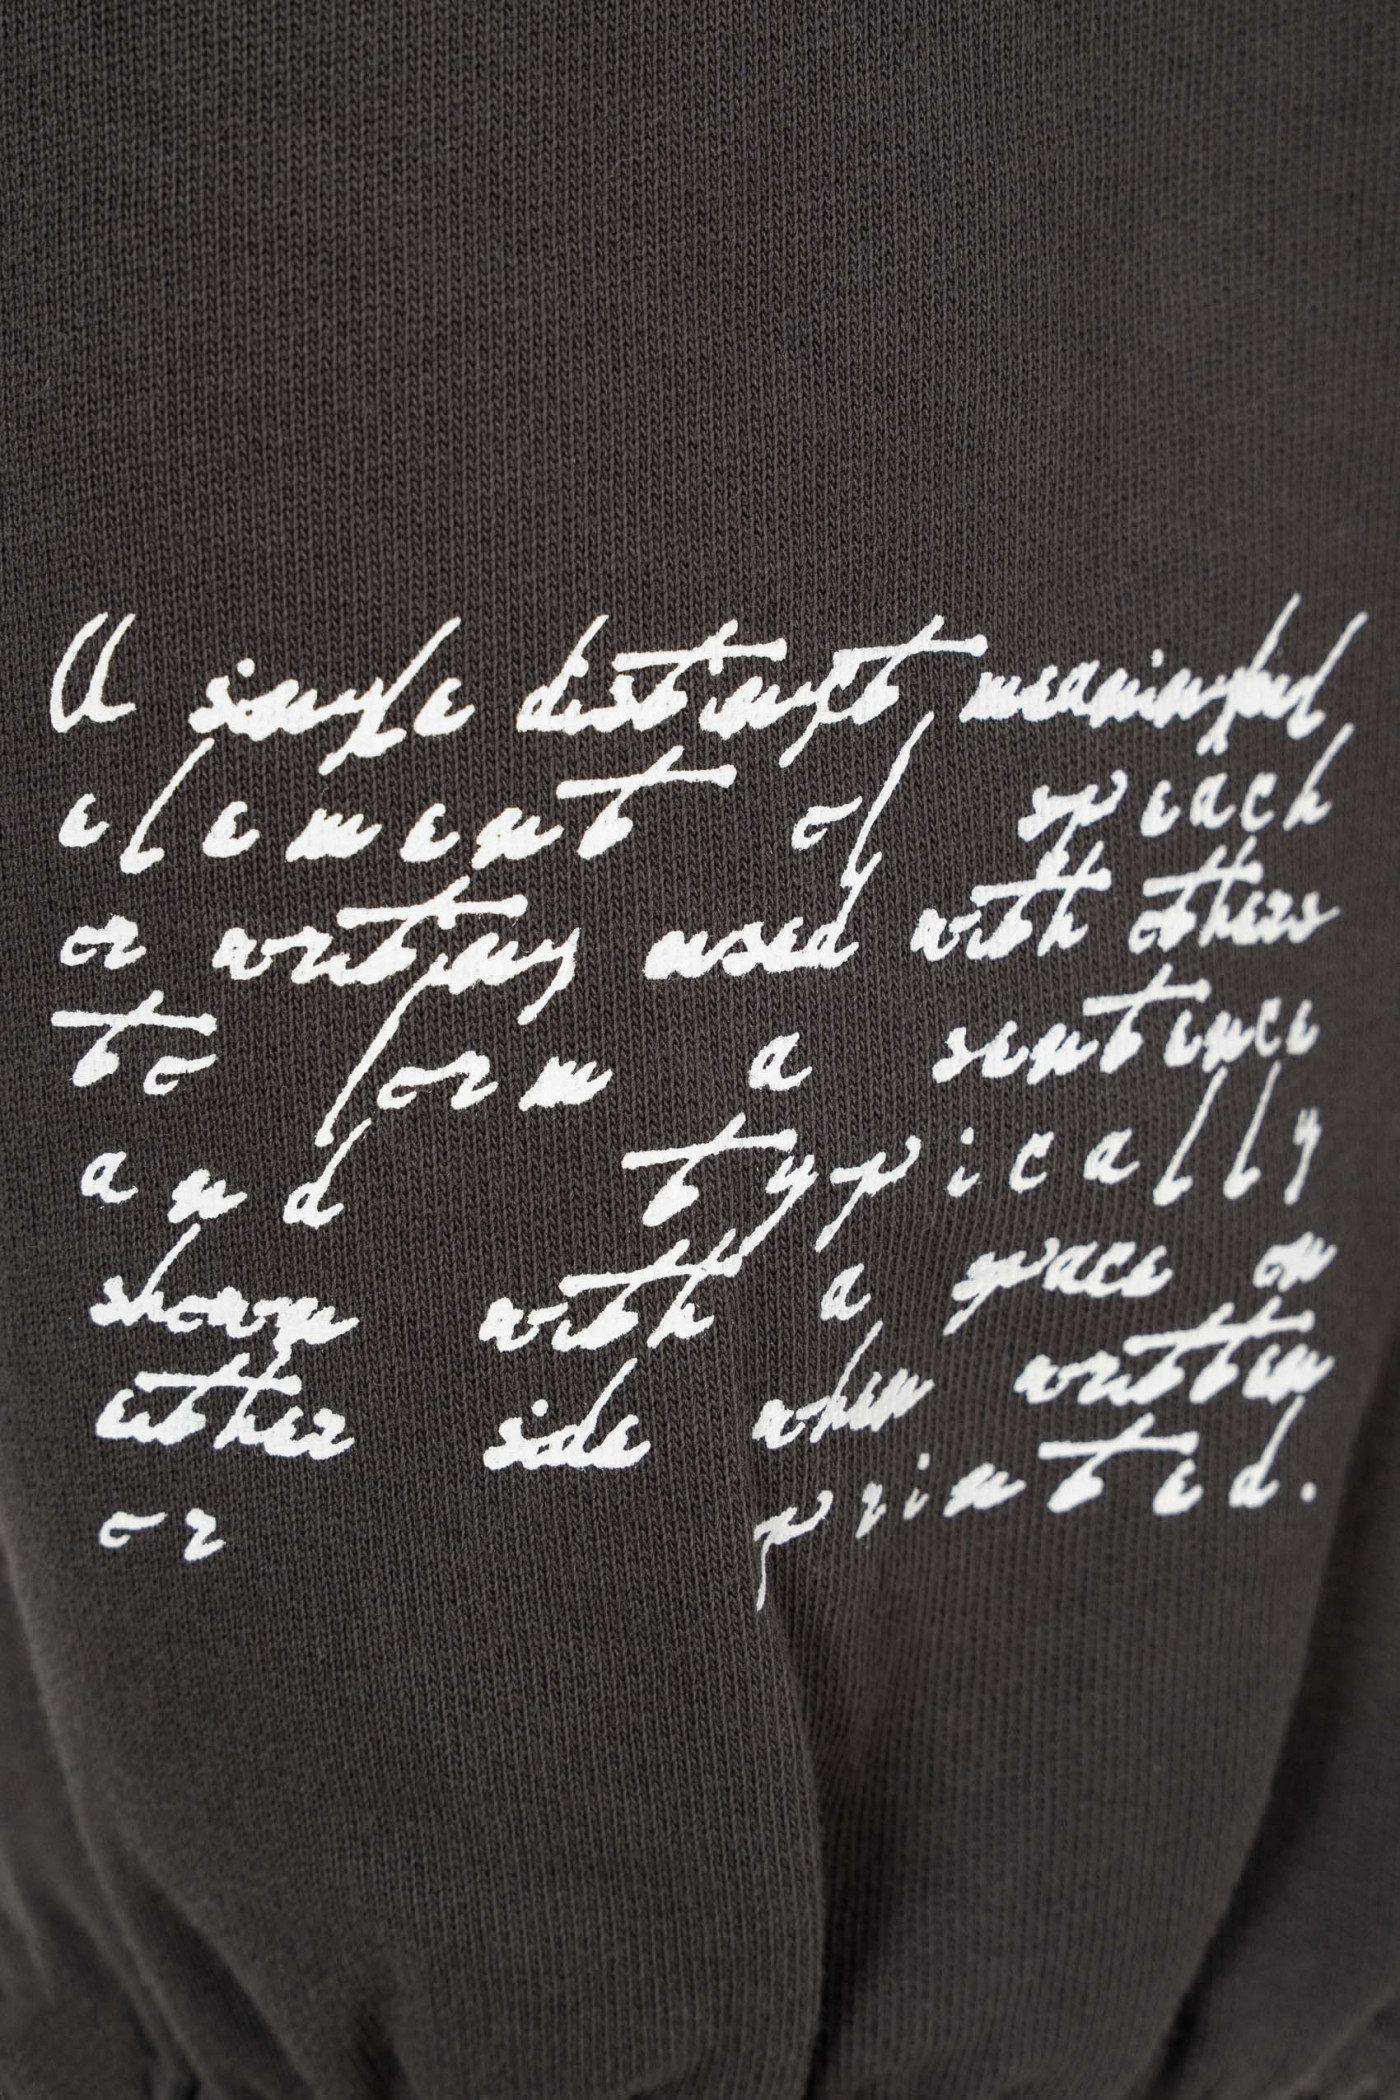 A single distinct meaningful
element of speach
or writing used with others
to form a sentence
and typically
shown with a space on
either side when written
or printed.